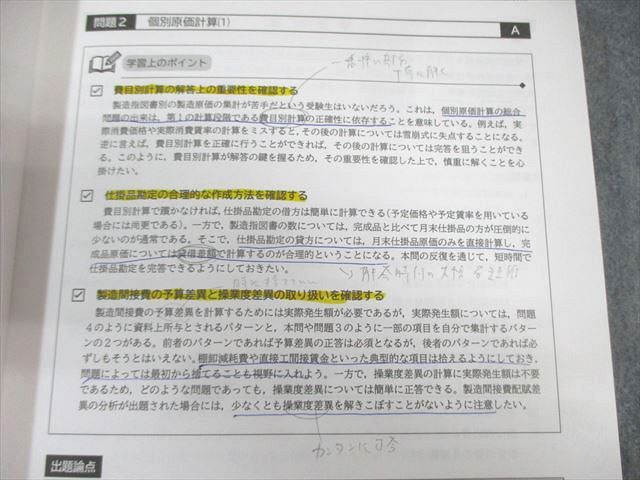 問題2 個別原価計算(1)
A
学習上のポイント
費目別計算の解答上の重要性を確認する
製造指図書別の製造原価の集計が苦手だという受験生はいないだろう。これは、個別原価計算の総合
問題の出来は、第1の計算段階である費目別計算の正確性に依存することを意味している。例えば、実
際消費価格や実際消費賃率の計算をミスすると、その後の計算については雪崩式に失点することになる。
逆に言えば、費目別計算を正確に行うことができれば、その後の計算については完答を狙うことができ
る。このように、費目別計算が解答の鍵を握るため、その重要性を確認した上で、慎重に解くことを心
掛けたい。
仕掛品勘定の合理的な作成方法を確認する
費目別計算で躓かなければ、仕掛品勘定の借方は簡単に計算できる(予定価格や予定賃率を用いている
場合には尚更である)。一方で、製造指図書の数については、完成品と比べて月末仕掛品の方が圧倒的に
少ないのが通常である。そこで、仕掛品勘定の貸方については、月末仕掛品原価のみを直接計算し、完
成品原価については貸借差額で計算するのが合理的ということになる。本問の反復を通じて、短時間で
仕掛品勘定を完答できるようにしておきたい。
製造間接費の予算差異と操業度差異の取り扱いを確認する
製造間接費の予算差異を計算するためには実際発生額が必要であるが、実際発生額については、問題
4のように資料上所与とされるパターンと、本問や問題3のように一部の項目を自分で集計するパター
ンの2つがある。前者のパターンであれば予算差異の正答は必須となるが、後者のパターンであれば必
ずしもそうとはいえない。棚卸減耗費や直接工間接賃金といった典型的な項目は拾えるようにしておき、
問題によっては最初から捨てることも視野に入れよう。一方で、操業度差異の計算に実際発生額は不要
であるため、どのような問題であっても、操業度差異については簡単に正答できる。製造間接費配賦差
異の分析が出題された場合には、少なくとも操業度差異を解きこぼすことがないように注意したい。
カンタンに可答
出題論点